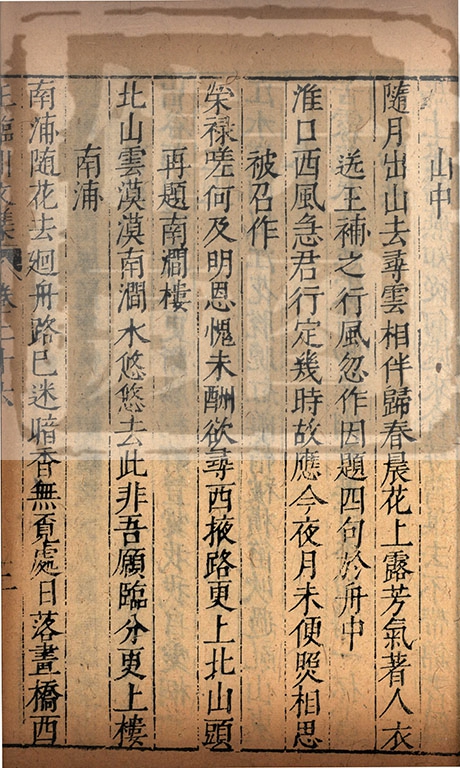 山中
隨月出山去尋雲相伴歸春晨花上露芳氣著人衣
送王補之行風忽作因題四句於舟中
淮口西風急君行定幾時故應今夜月未便照相思
被召作
榮祿嗟何及明恩愧未酬欲尋西掖路更上北山頭
再題南澗樓
北山雲漠漠南澗水悠悠去此非吾願臨分更上樓
南浦
南浦隨花去廻舟路已迷暗香無覓處日落畫橋西
王臨川文集 卷二十六